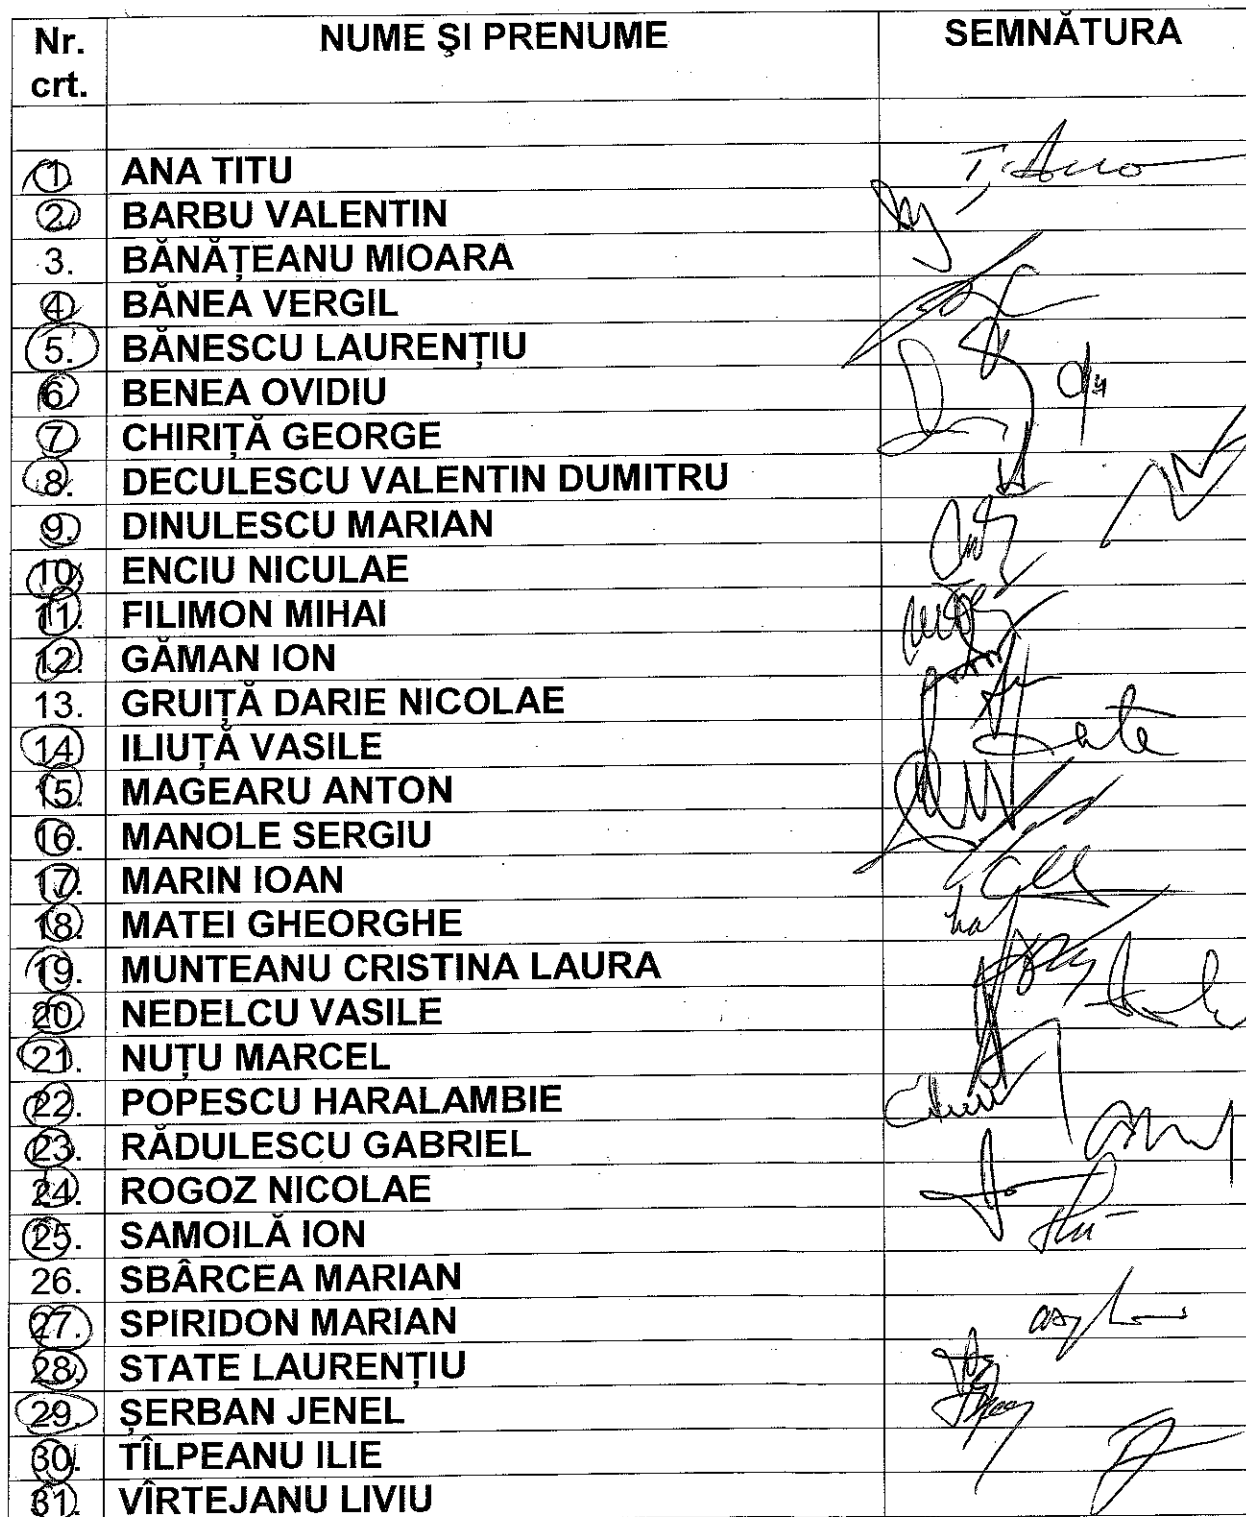 Nr. crt. NUME ŞI PRENUME SEMNĂTURA
1. ANA TITU
2. BARBU VALENTIN
3. BĂNĂŢEANU MIOARA
4. BĂNEA VERGIL
5. BĂNESCU LAURENŢIU
6. BENEA OVIDIU
7. CHIRIŢĂ GEORGE
8. DECULESCU VALENTIN DUMITRU
9. DINULESCU MARIAN
10. ENCIU NICULAE
11. FILIMON MIHAI
12. GĂMAN ION
13. GRUIŢĂ DARIE NICOLAE
14. ILIUŢĂ VASILE
15. MAGEARU ANTON
16. MANOLE SERGIU
17. MARIN IOAN
18. MATEI GHEORGHE
19. MUNTEANU CRISTINA LAURA
20. NEDELCU VASILE
21. NUŢU MARCEL
22. POPESCU HARALAMBIE
23. RĂDULESCU GABRIEL
24. ROGOZ NICOLAE
25. SAMOILĂ ION
26. SBÂRCEA MARIAN
27. SPIRIDON MARIAN
28. STATE LAURENŢIU
29. ŞERBAN JENEL
30. TÎLPEANU ILIE
31. VÎRTEJANU LIVIU